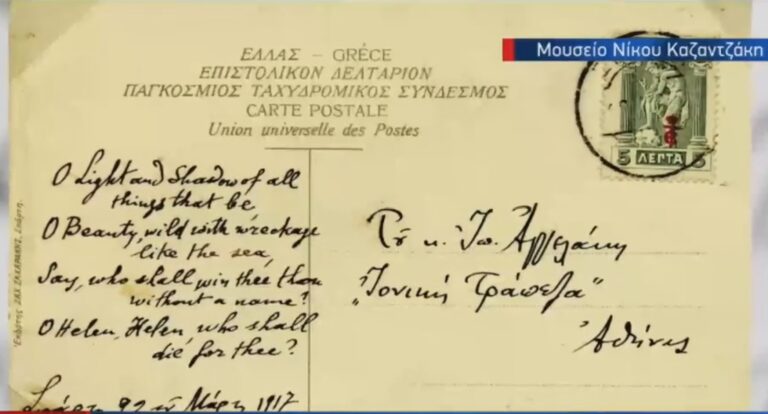 Μουσείο Νίκου Καζαντζάκη
ΕΛΛΑΣ – GRÈCE
ΕΠΙΣΤΟΛΙΚΟΝ ΔΕΛΤΑΡΙΟΝ
ΠΑΓΚΟΣΜΙΟΣ ΤΑΧΥΔΡΟΜΙΚΟΣ ΣΥΝΔΕΣΜΟΣ
CARTE POSTALE
Union universelle des Postes
5 ΛΕΠΤΑ 5
O Light and Shadow of all
things that be
O Beauty, wild with wreckage
like the sea,
Say, who shall win thee thou
without a name?
O Helen, Helen, who shall
die for thee?
Σπάρτη 22 Μάρτη 1917
Ἀγγελάκη
„Ἰονική Τράπεζα"
Ἀθήνας
Ἐκδότης ΖΑΧ